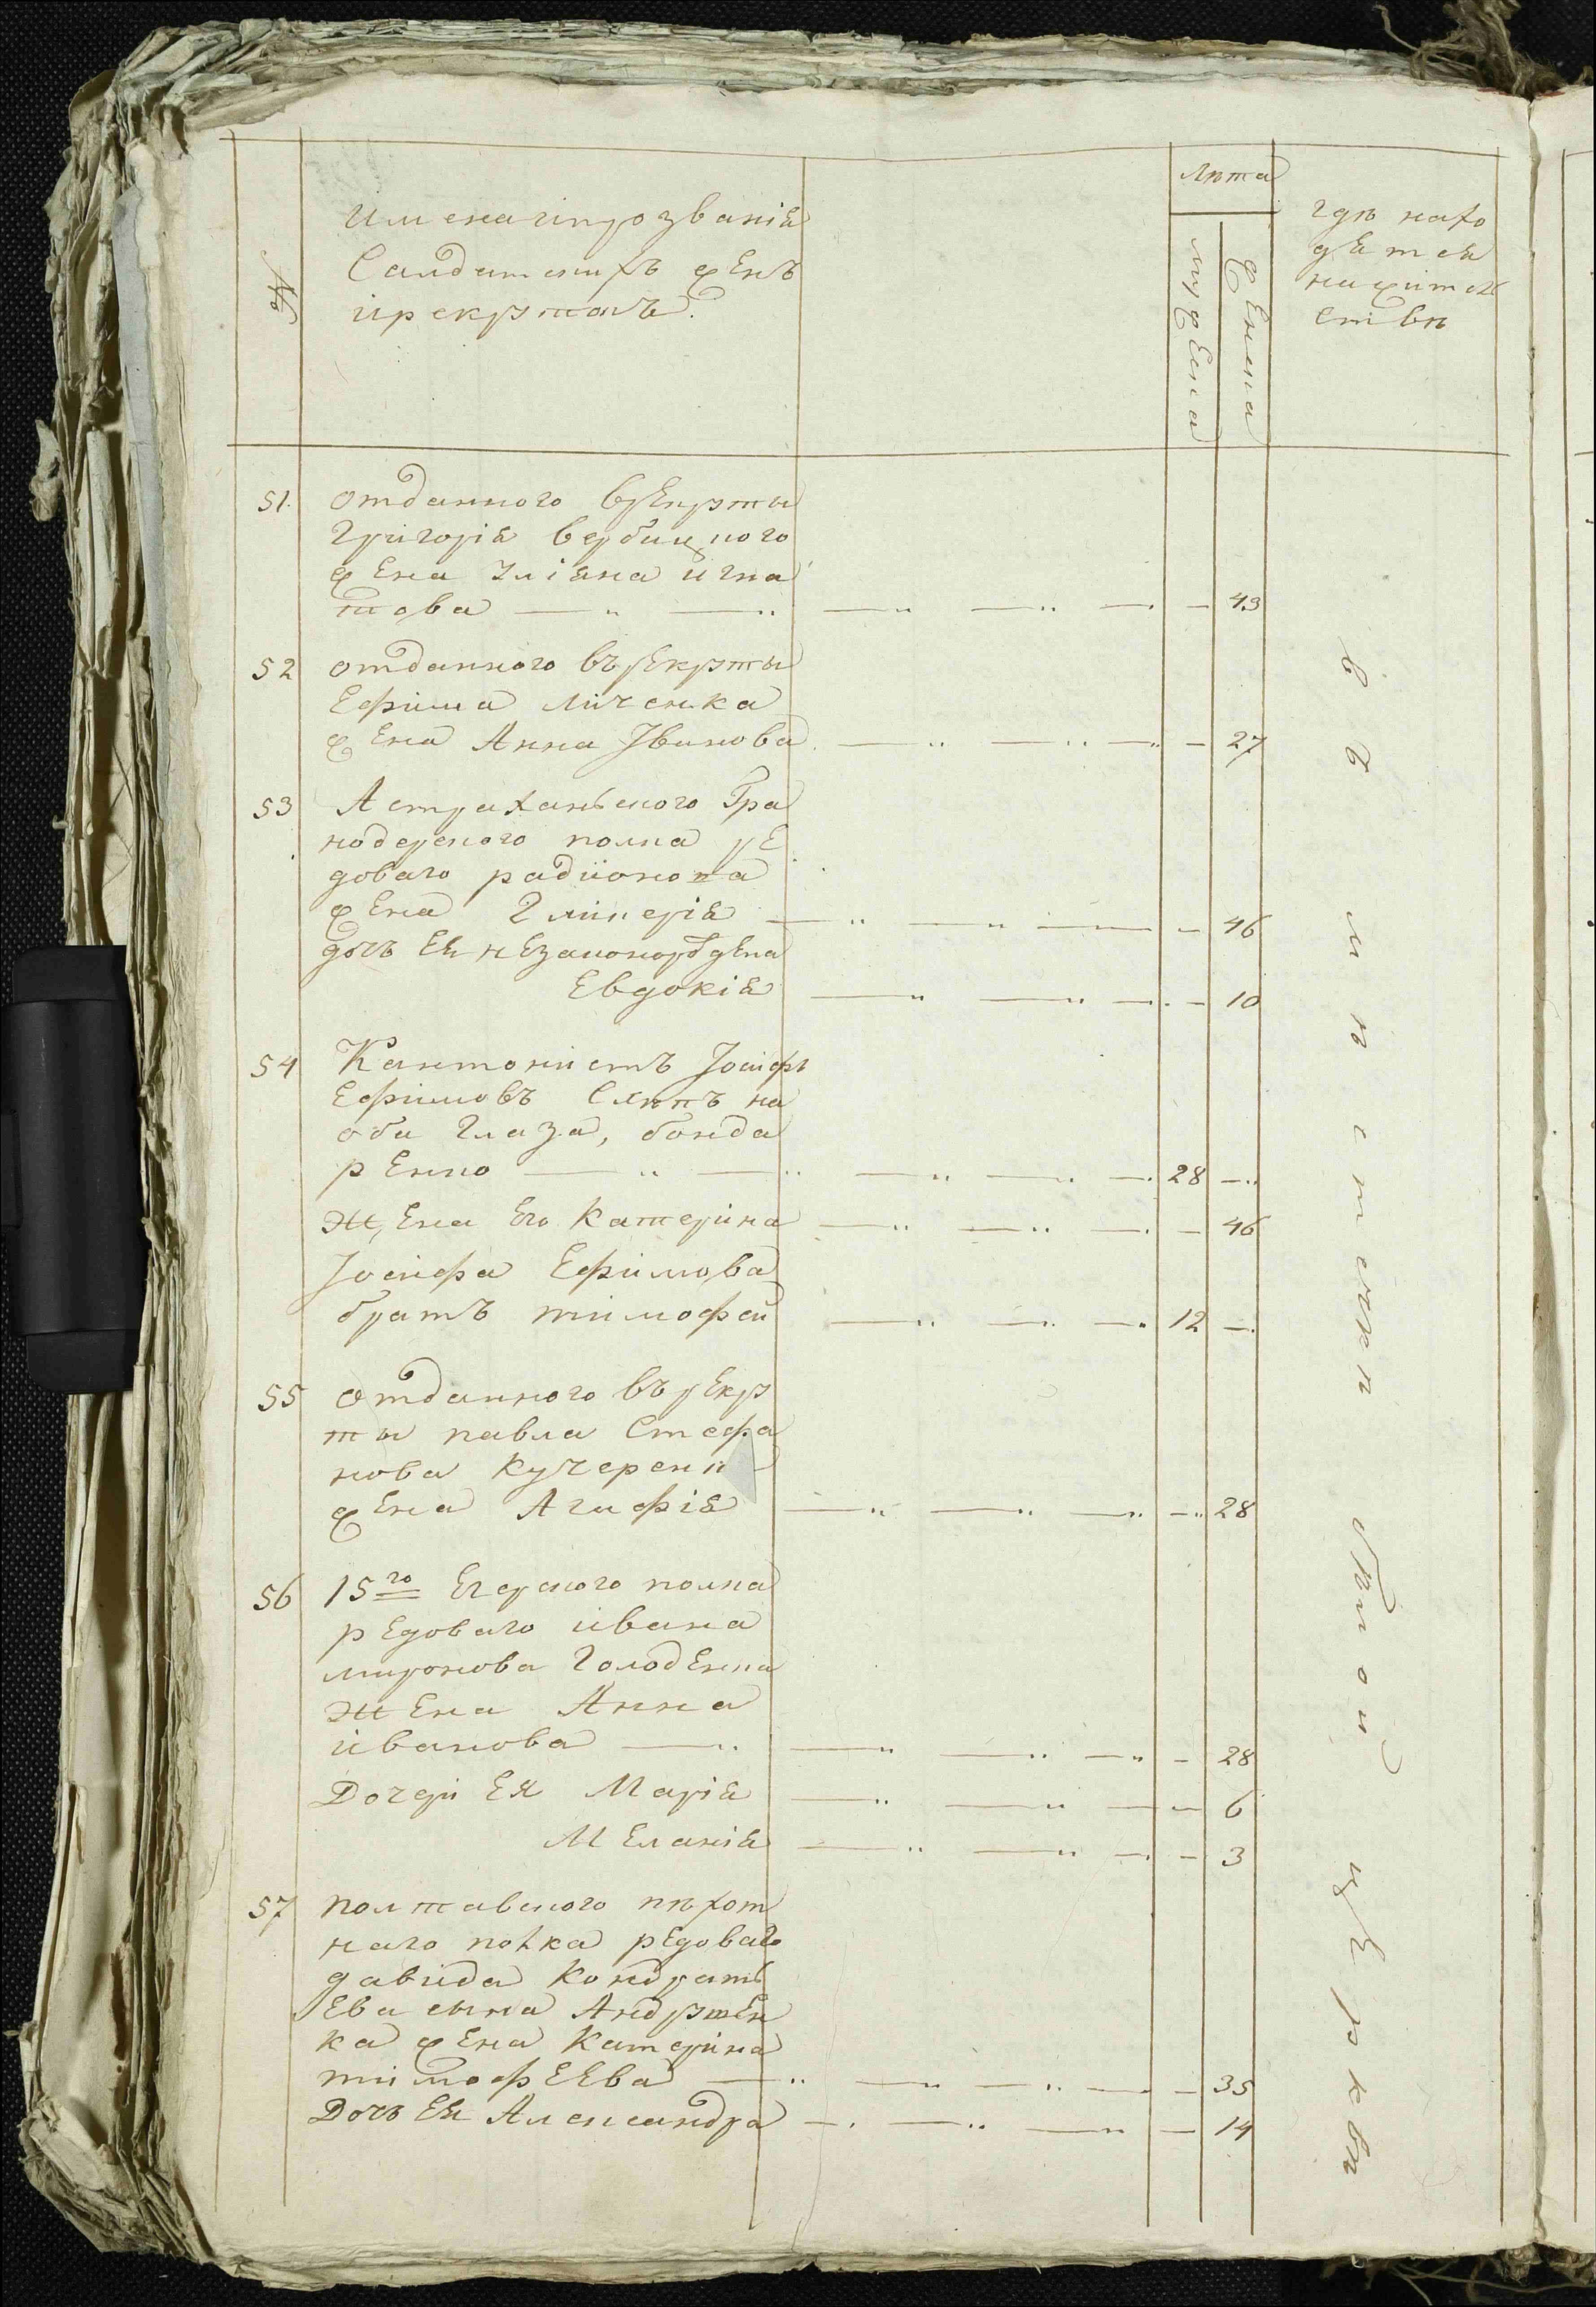 №
имена ипрозваніа
Салдатскихъ женъ
ирекрутовъ.
лѣта
мужеска
женска
гдѣ нахо
дятся
нажител
ствѣ
51 отданного врекруты
Григоріа вербицкого
жена Уліана игна
това — „ — „ — „ — „ — — 43
52 отданного въ рекруты
Ефима личенка
жена Анна Іванова — „ — „ — „ — 27
53 Астраханьского Гра
нодерского полка ре
доваго радіонова
жена Гликеріа — „ — „ — — 46
дочъ Ея незаконорожденна
Евдокіа — „ — „ — — 10
54 Кантонистъ Іосифъ
Ефимовъ Слѣпъ на
оба глаза, бонда
ренко — „ — „ — „ — „ — 28 —
Жена Его Катеріна — „ — „ — — 46
Іосифа Ефимова
братъ тимофей — „ — „ — 12 —
55 отданного въ рекру
ты павла Стефа
нова кучеренк
жена Агафіа — „ — „ — „ — „ 28
56 15го Егерского полка
редоваго ивана
миронова Голоденка
жена Анна
иванова — „ — „ — „ — „ — 28
Дочери Ея Маріа — „ — „ — — 6
Меланіа — „ — „ — — 3
57 полтавского пѣхот
наго полка редоваго
давида Кондрать
Ева сына Андрущен
ка жена Катерина
тимофеева — „ — „ — „ — — 35
Дочъ Ея Александра — „ — „ — „ — 14
въ мѣстечкѣ
церкви